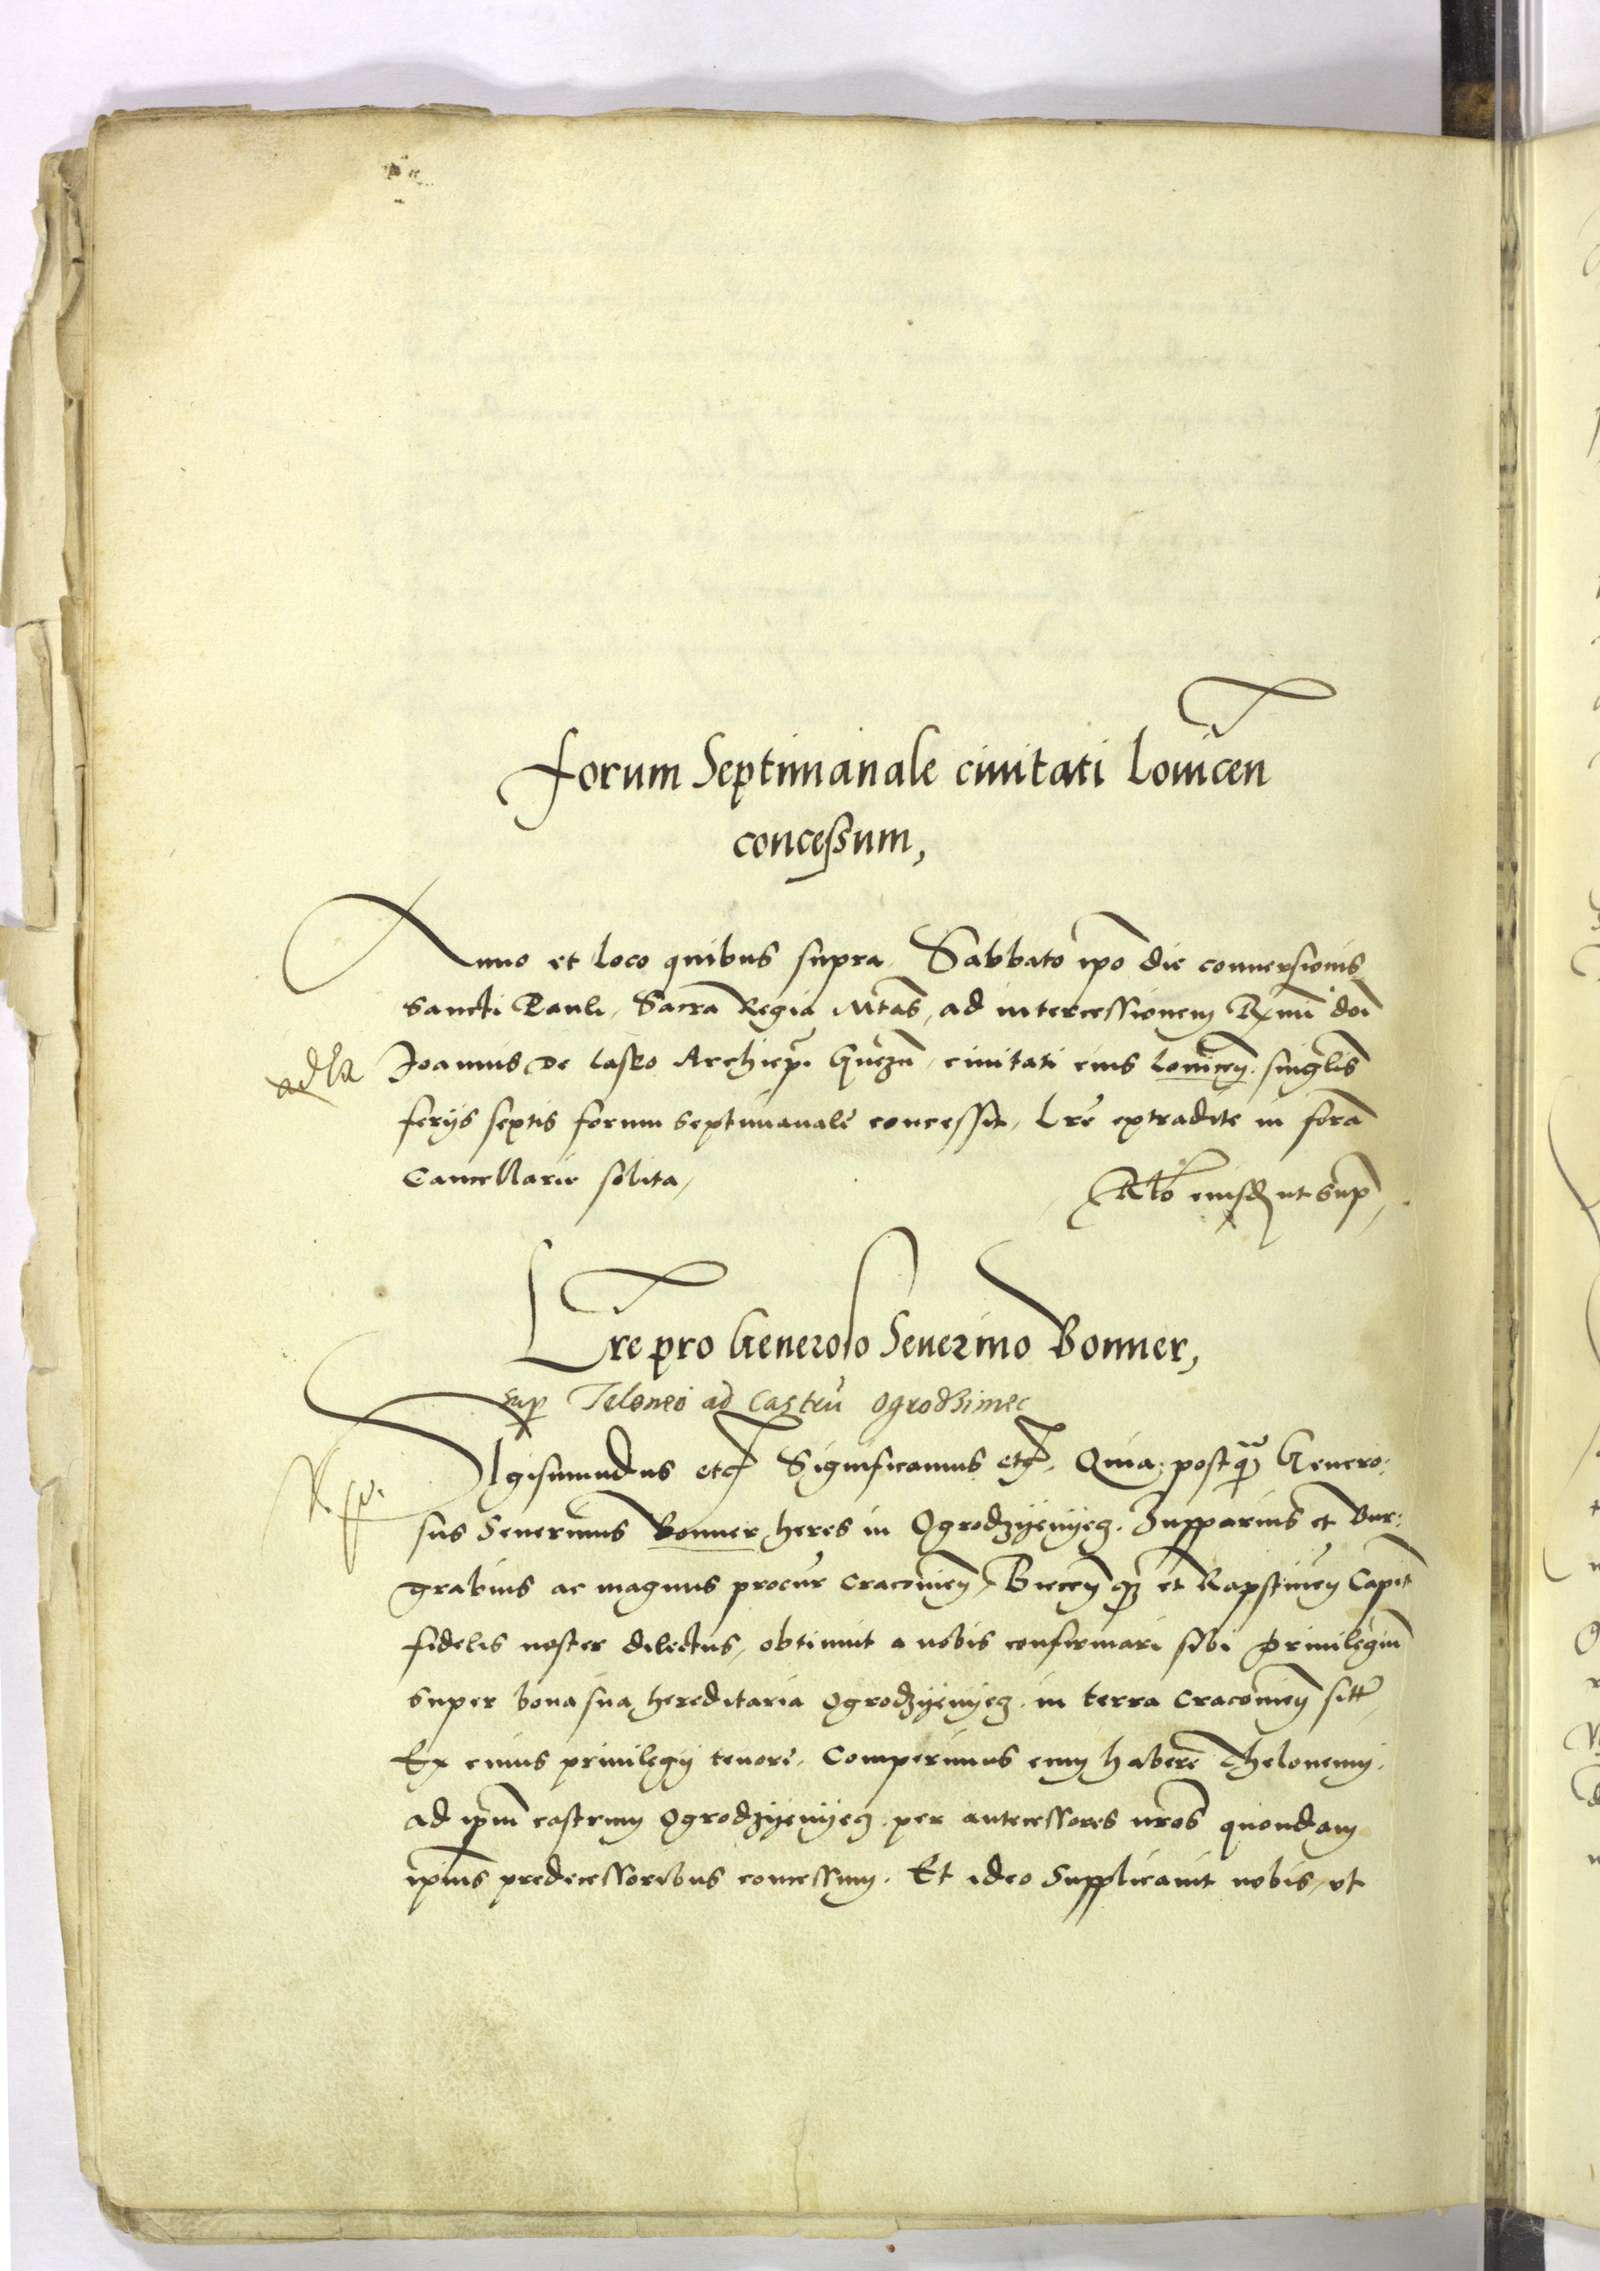 Forum Septimanale civitati Lovicen
concessum,
Anno et loco quibus supra Sabbato ipo die conversionis
Sancti Pauli, Sacra Regia Mtas, ad intercessionem Rxmi doi
Joannis de Lasko Archiepi Gnezn, civitati eius Lovicen, singlis
ferijs septis forum septimanale concessit, Lre extradite in fora
Cancellarie solita,
Rlo eiusd ut sup,
Lre pro Generoso Severino Bonner,
sup Teloneo ad Castru Ogrodzimec
Sigismundus etc Significamus etc, Quia postq Genero:
sus Severinus Bonner heres in Ogrodzyenyecz, Zupparius et Bur:
grabius ac magnus procur Cracovien, Biecen q et Rapstinen Capit
fidelis noster dilectus, obtinuit a nobis confirmari sibi privilegiu
super bona sua hereditaria Ogrodzyenyecz in terra Cracovien sitt,
Ex cuius privilegij tenore, Comperimus eum habere Theloneum
ad ipm castrum Ogrodzyenyecz per antecessores nros quondam
ipius predecessoribus concessum. Et ideo Supplicavit nobis, ut